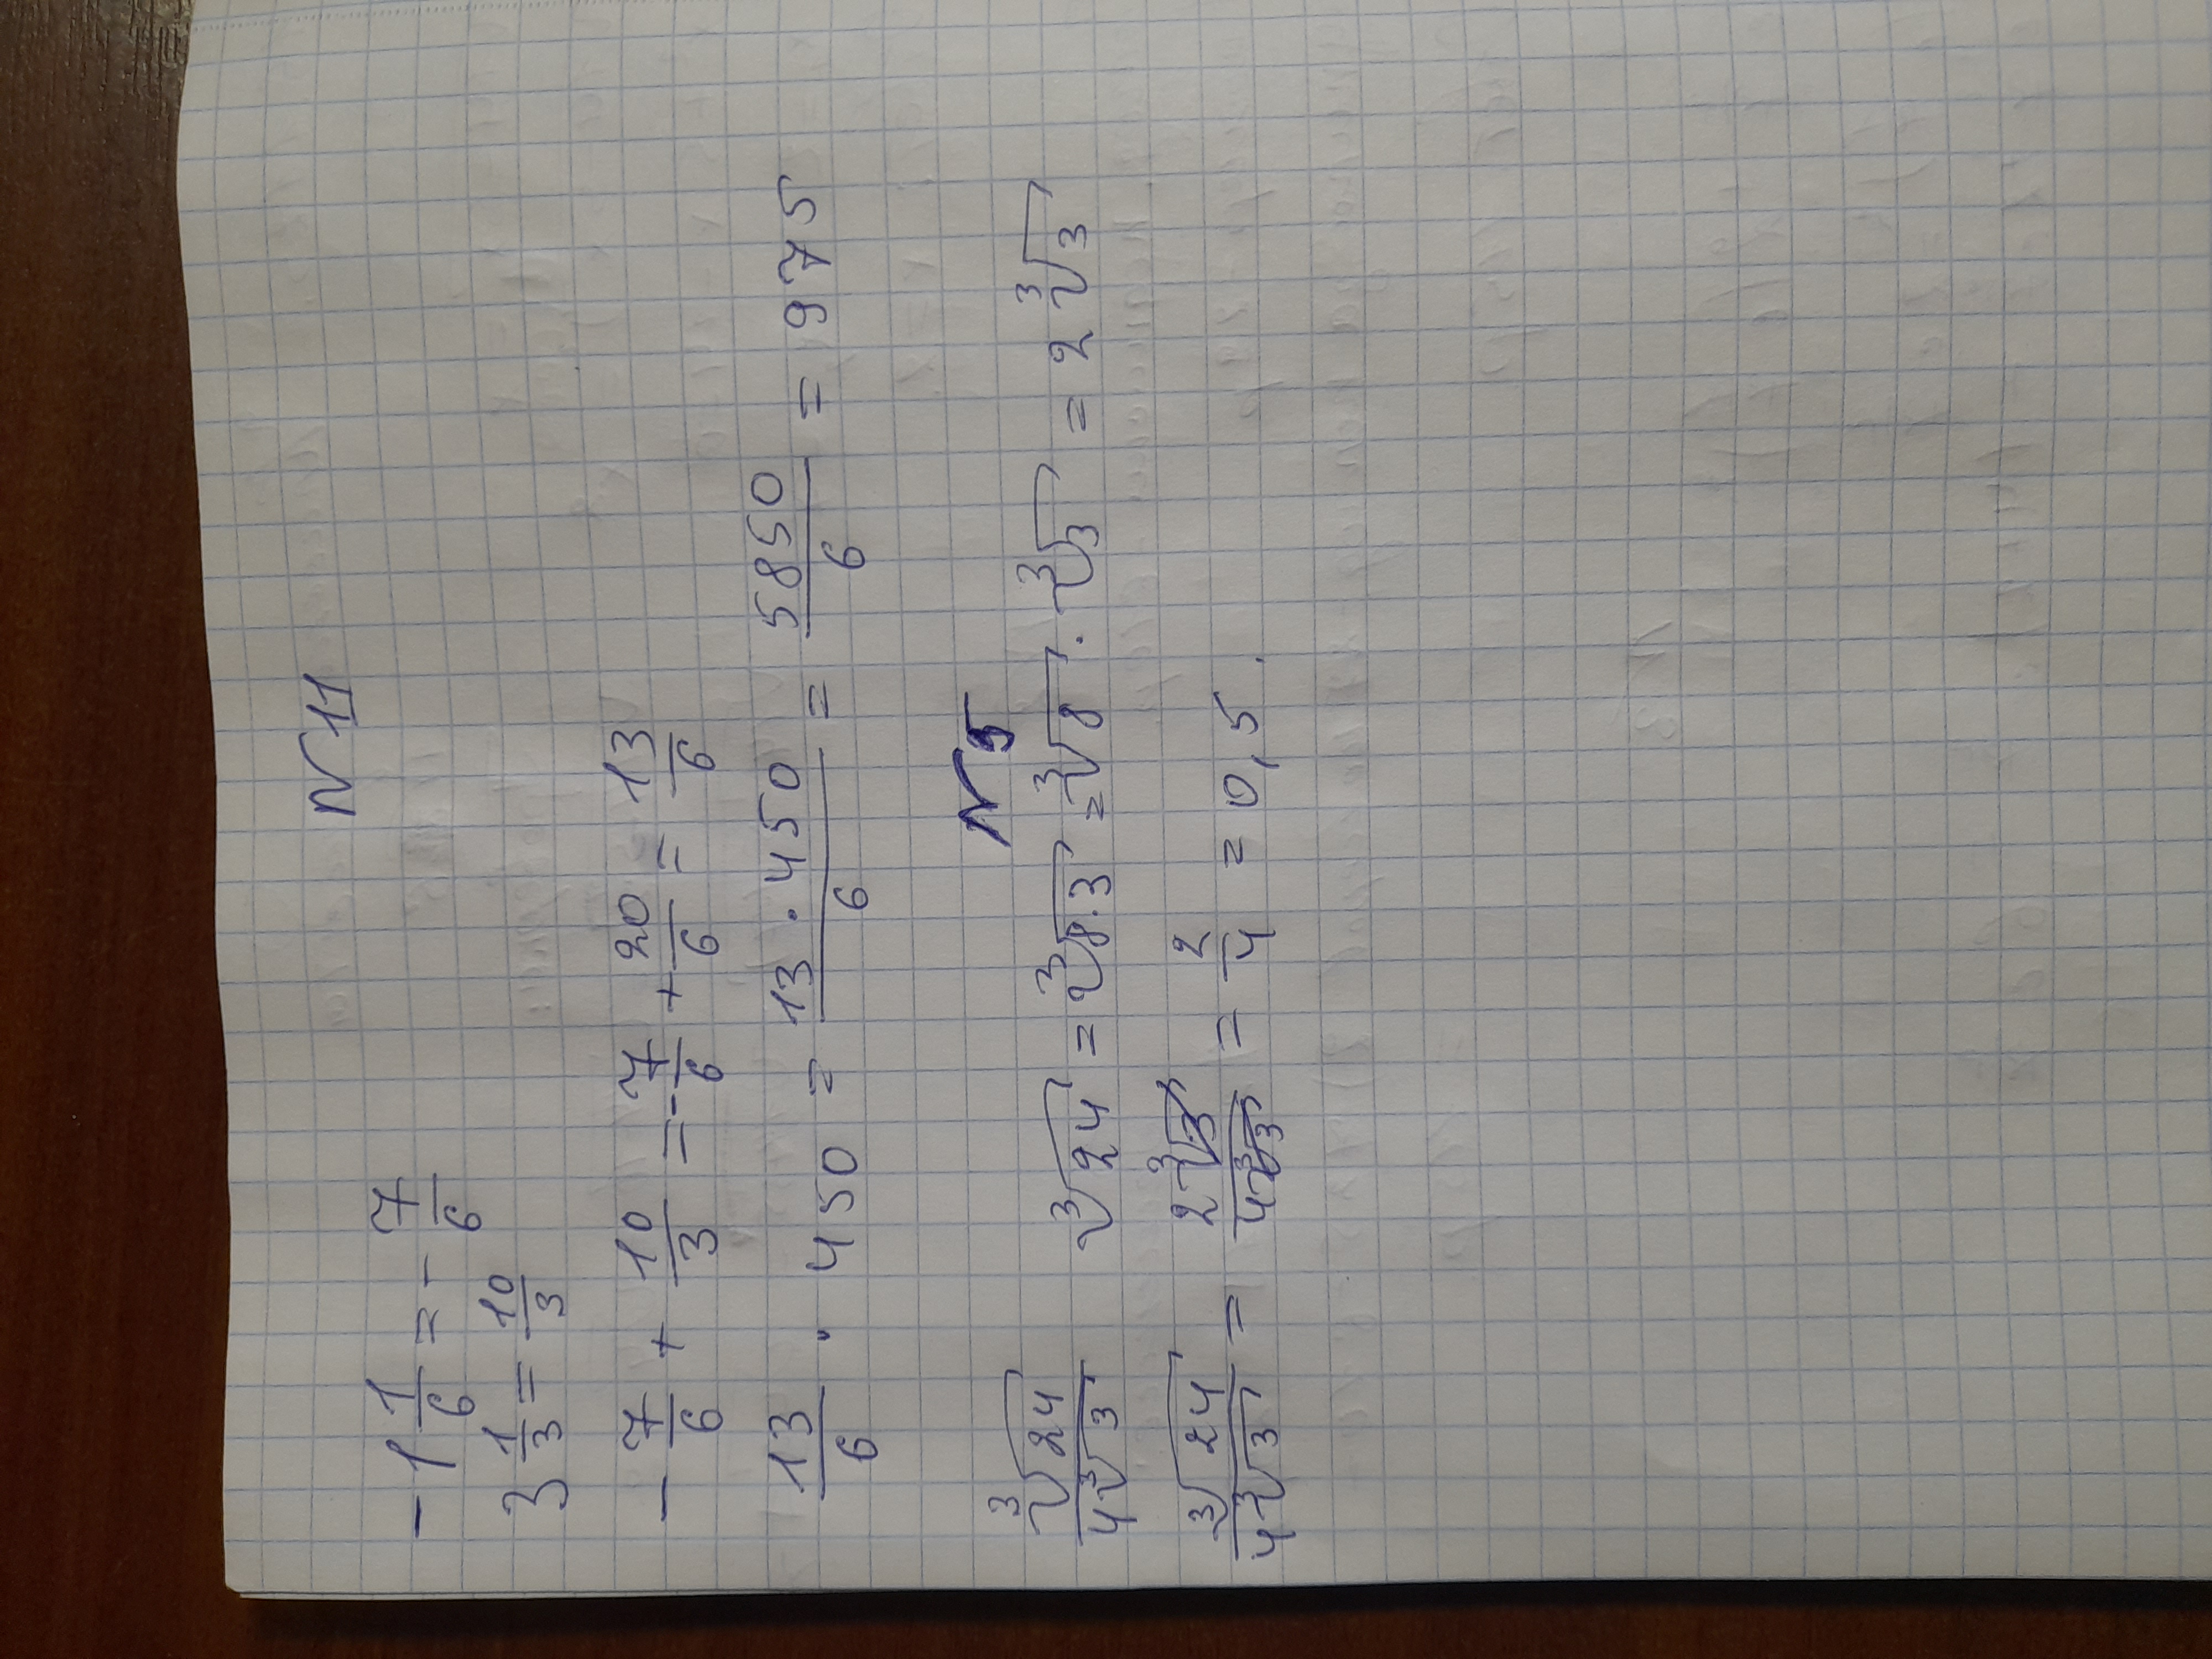 N 11
- 1 1/6 = - 7/6
3 1/3 = 10/3
- 7/6 + 10/3 = - 7/6 + 20/6 = 13/6
13/6 · 450 = 13 · 450/6 = 5850/6 = 975
N 5
∛24/4∛3 ∛24 = ∛8·3 = ∛8 · ∛3 = 2∛3
∛24/4∛3 = 2∛3/4∛3 = 2/4 = 0,5.